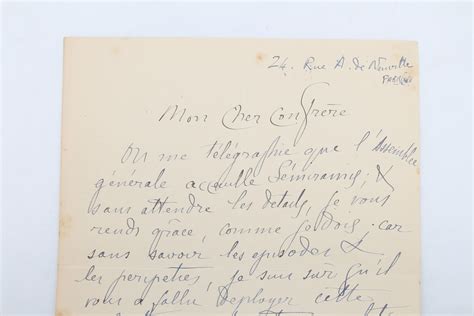 24. Rue A. de Neuville
Mon Cher Confrère
On me télégraphie que l'Assemblée
générale accueille Sémiramis; &
sans attendre les détails, je vous
rends grâce, comme je dois; car
sans savoir les episodes &
les peripeties, je suis sur qu'il
vous a fallu deployer cette